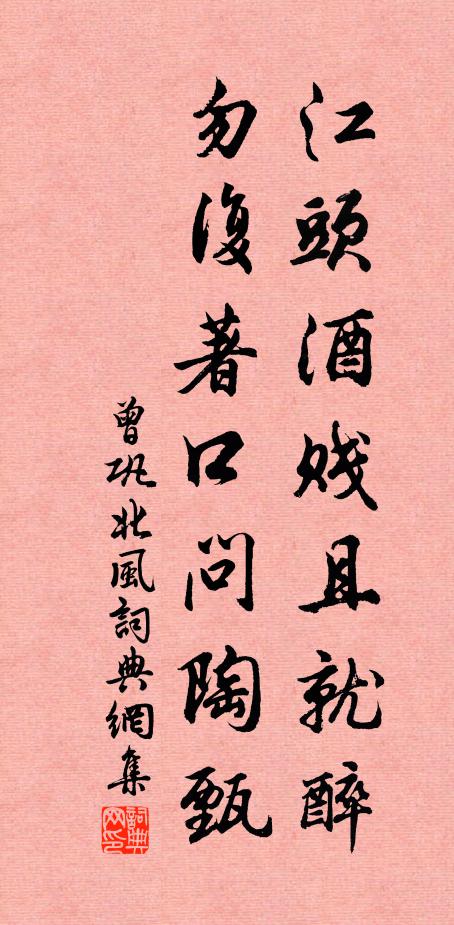 江頭酒賤且就醉
勿復著口問陶甄
曾巩北風詞典網集
詞典網印